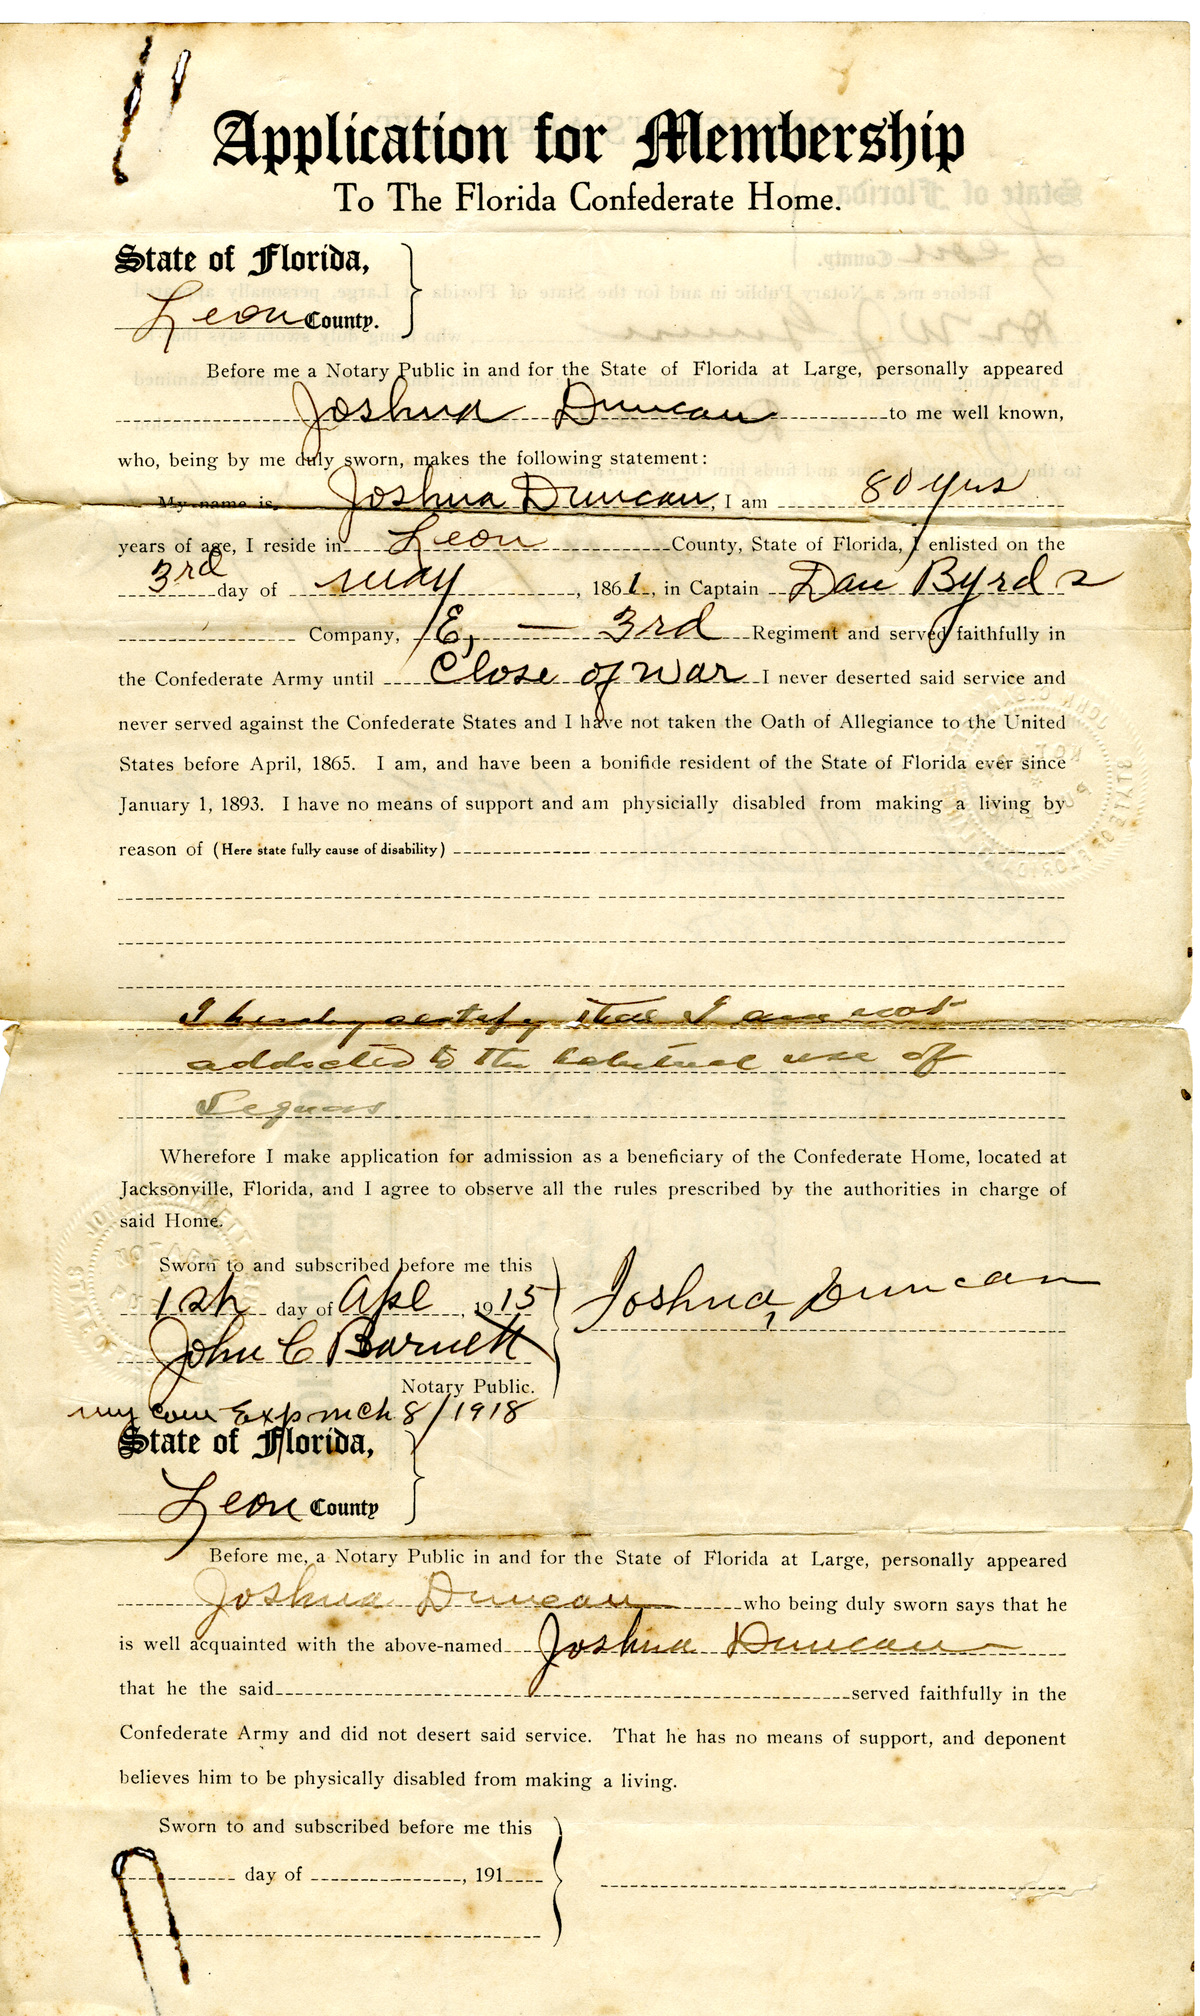 Application for Membership
To The Florida Confederate Home.
State of Florida,
Leon County.
Before me a Notary Public in and for the State of Florida at Large, personally appeared
Joshua Duncan to me well known,
who, being by me duly sworn, makes the following statement:
My name is Joshua Duncan, I am 80 yrs
years of age, I reside in Leon County, State of Florida, I enlisted on the
3rd day of may, 1861, in Captain Dan Byrds
Company, E, — 3rd Regiment and served faithfully in
the Confederate Army until Close of War I never deserted said service and
never served against the Confederate States and I have not taken the Oath of Allegiance to the United
States before April, 1865. I am, and have been a bonifide resident of the State of Florida ever since
January 1, 1893. I have no means of support and am physicially disabled from making a living by
reason of (Here state fully cause of disability)
I hereby certify that I am not
addicted to the habitual use of
Lequors
Wherefore I make application for admission as a beneficiary of the Confederate Home, located at
Jacksonville, Florida, and I agree to observe all the rules prescribed by the authorities in charge of
said Home.
Sworn to and subscribed before me this
12th day of Apl, 1915
Joshua Duncan
John C Barnett
Notary Public.
my com Exp mch 8/1918
State of Florida,
Leon County
Before me, a Notary Public in and for the State of Florida at Large, personally appeared
Joshua Duncan who being duly sworn says that he
is well acquainted with the above-named Joshua Duncan
that he the said served faithfully in the
Confederate Army and did not desert said service. That he has no means of support, and deponent
believes him to be physically disabled from making a living.
Sworn to and subscribed before me this
day of , 191